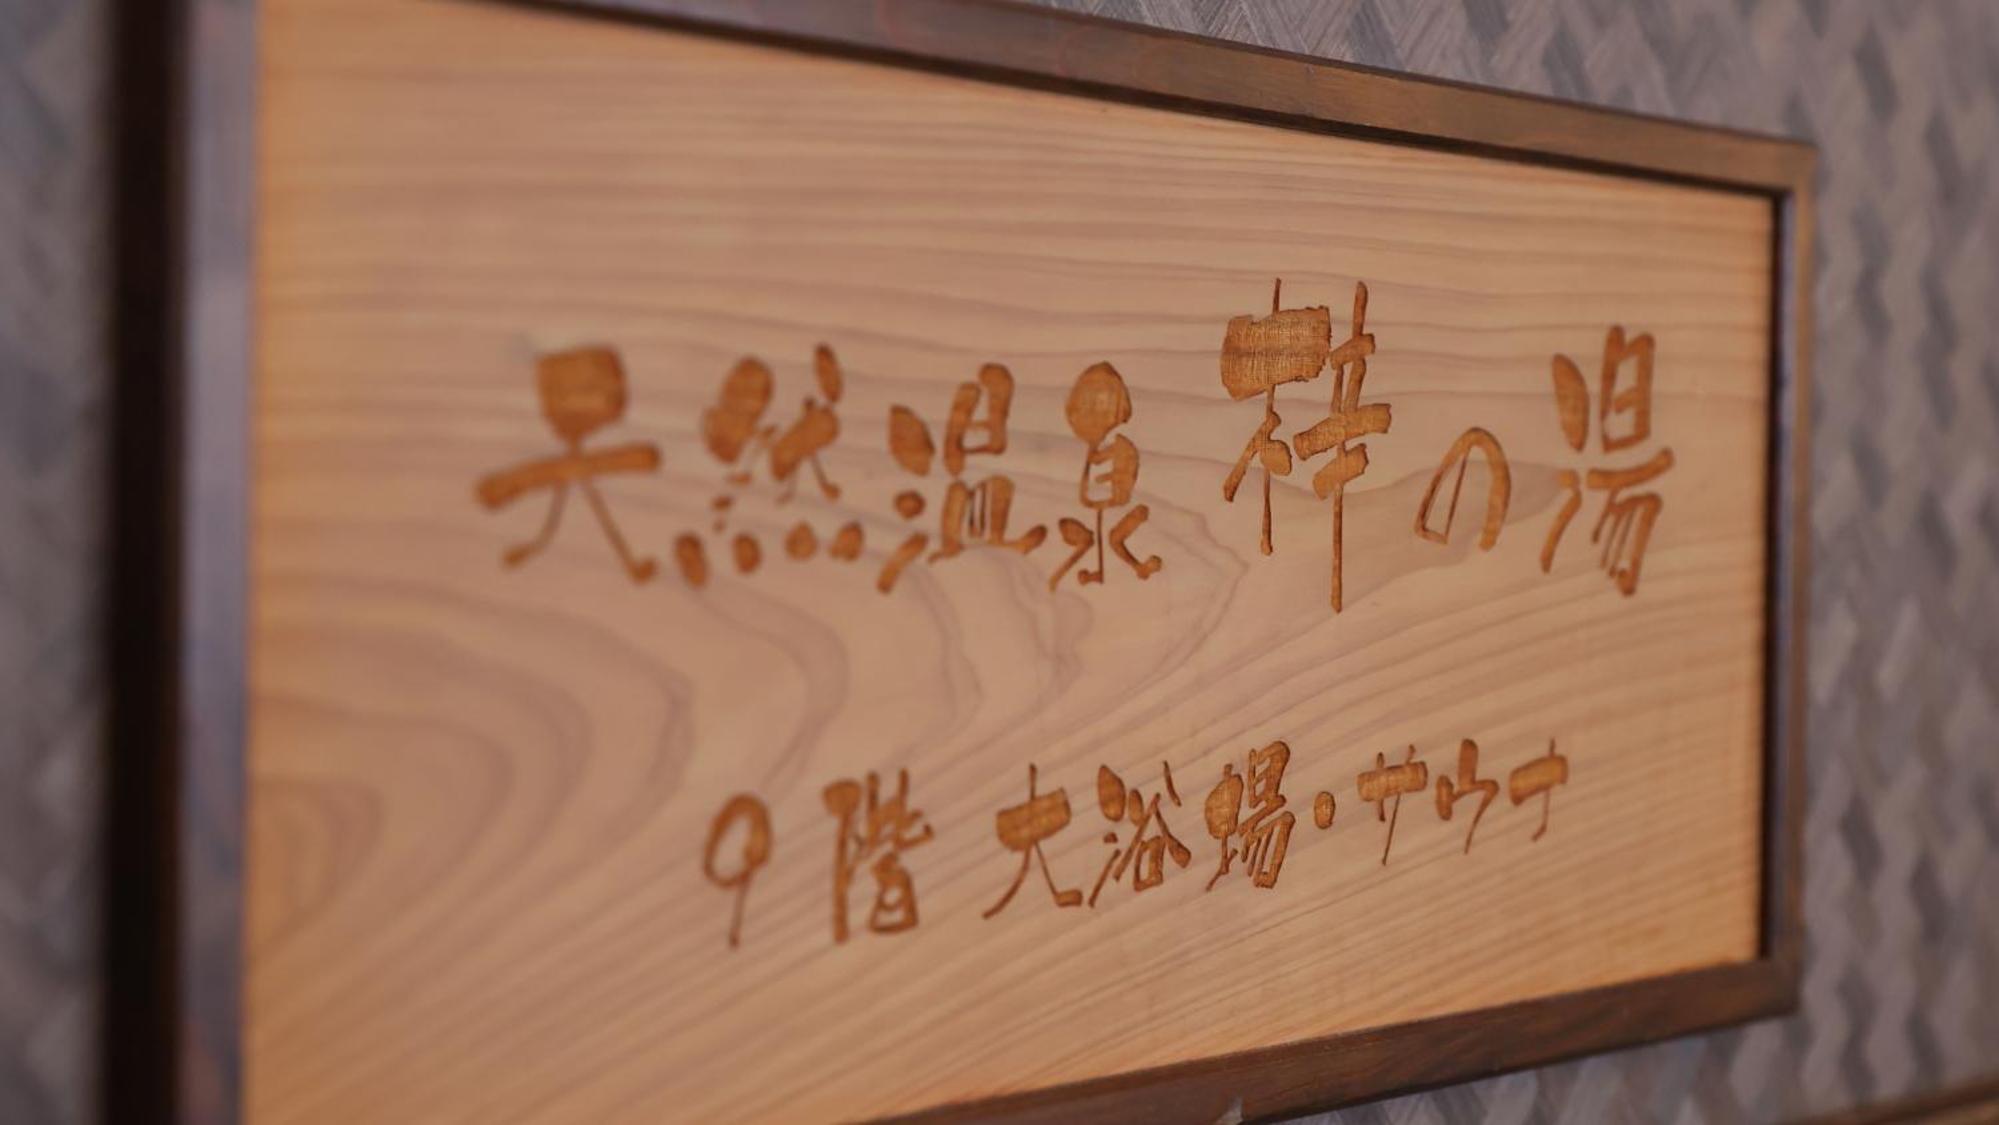 天然温泉 梓の湯
9階 大浴場・サウナ